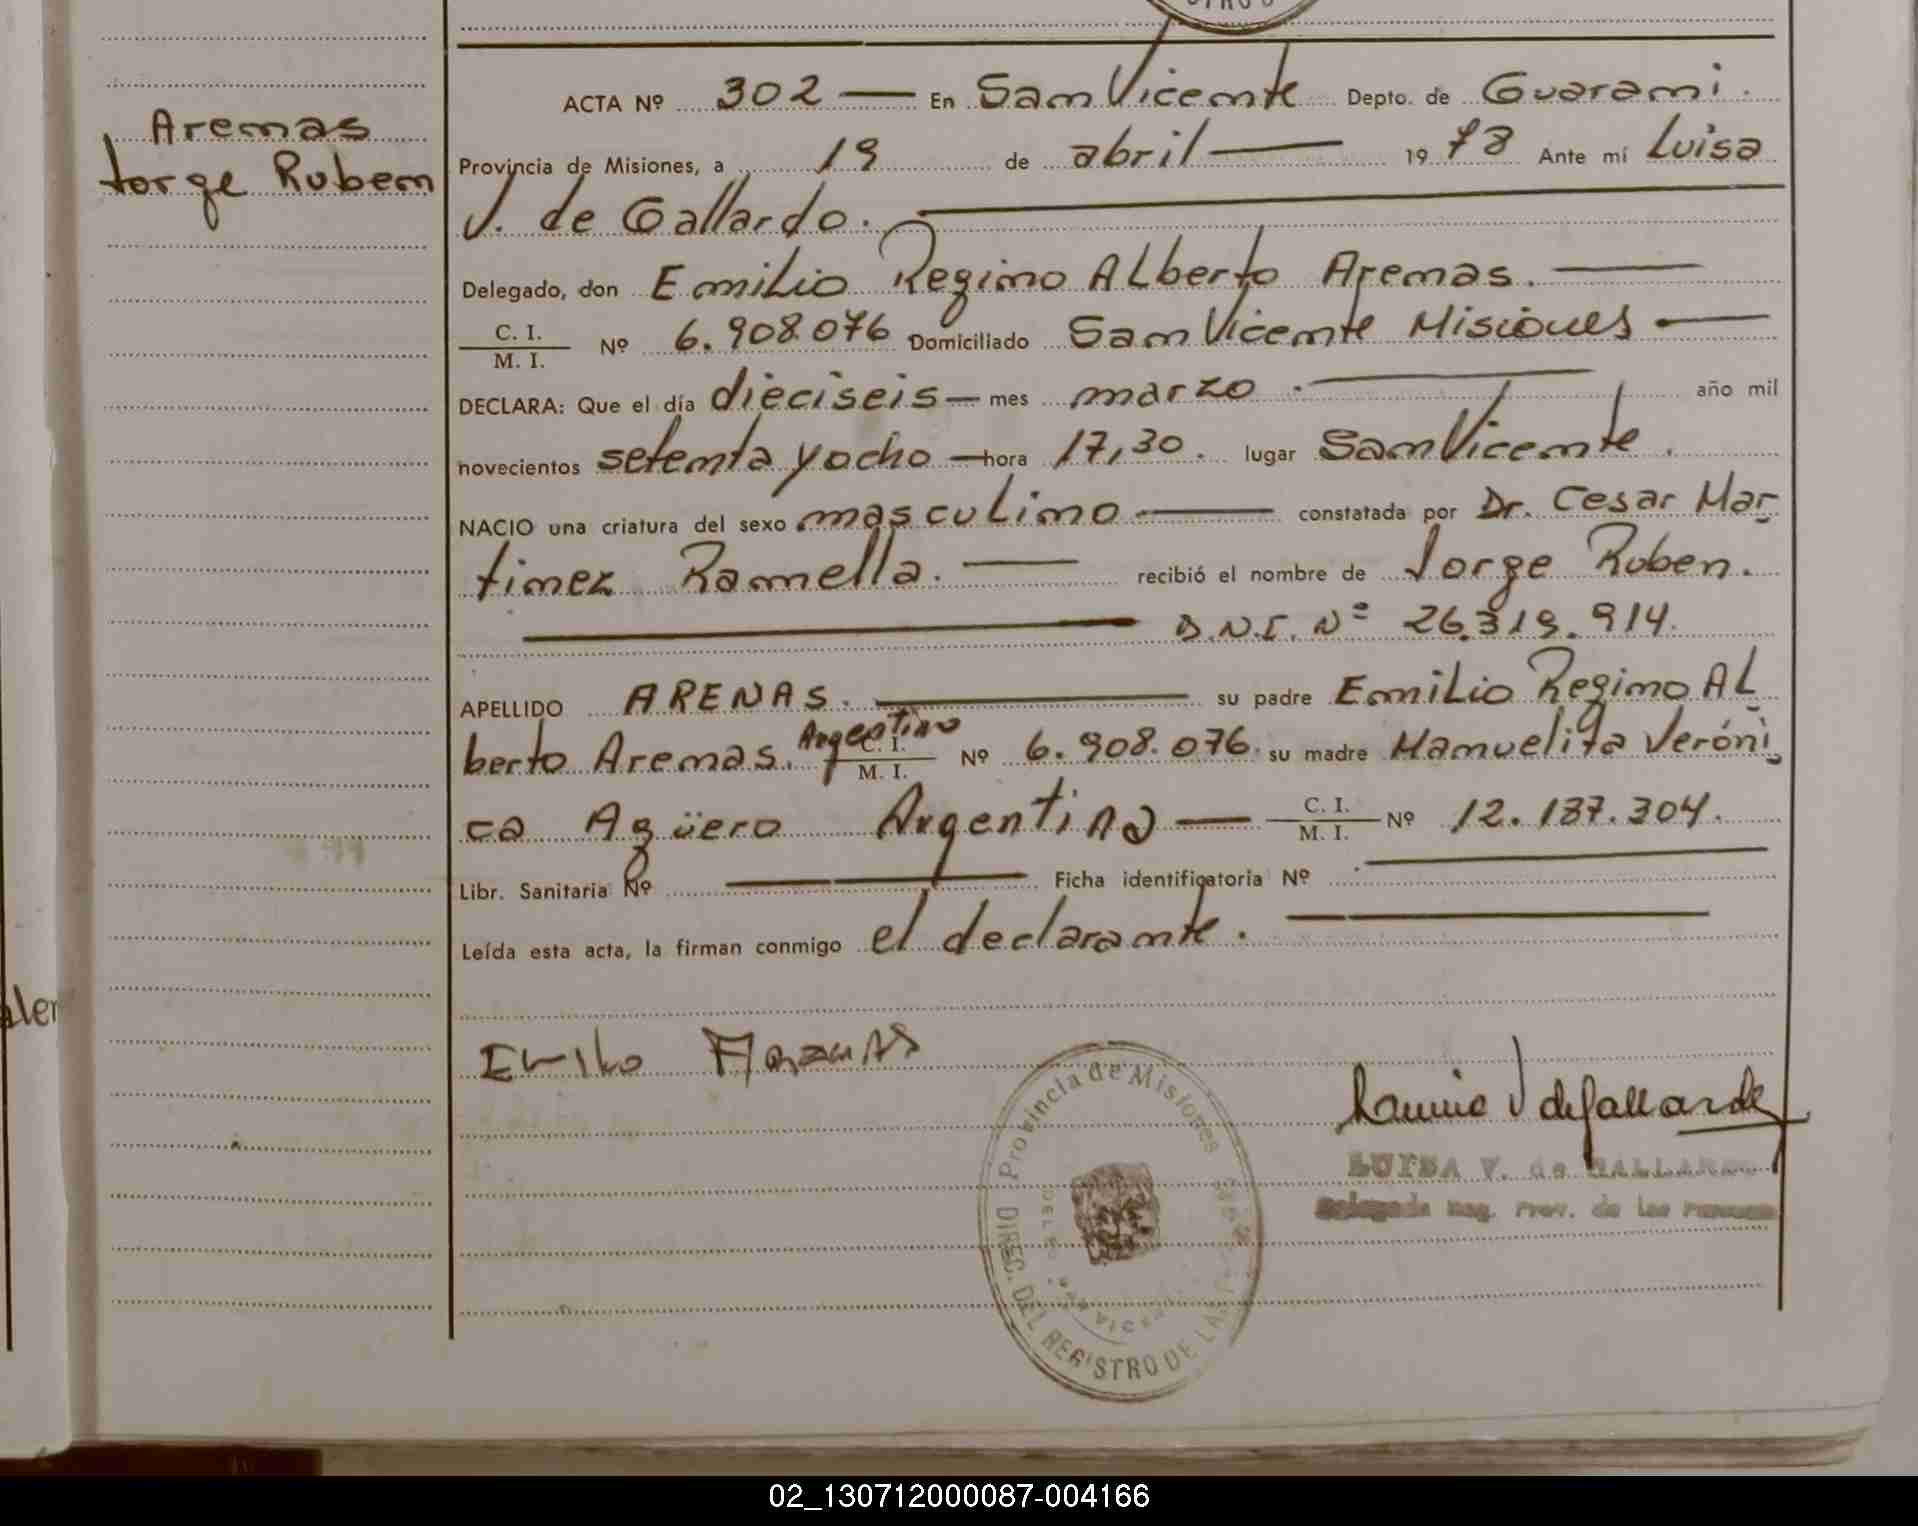 STRO D
ACTA Nº 302 — En San Vicente Depto. de Guarani.
Arenas
Jorge Ruben
Provincia de Misiones, a 19 de abril — 19 78 Ante mí Luisa
V. de Gallardo.
Delegado, don Emilio Regino Alberto Arenas. —
C. I.
M. I.
Nº 6.908.076 Domiciliado San Vicente Misiones —
DECLARA: Que el día dieciseis — mes marzo. — año mil
novecientos setenta y ocho — hora 17,30. lugar San Vicente.
NACIO una criatura del sexo masculino — constatada por Dr. Cesar Mar-
tinez Ramella. — recibió el nombre de Jorge Ruben.
— D.N.I. Nº 26.319.914.
APELLIDO ARENAS. — su padre Emilio Regino Al-
berto Arenas. Argentino C. I. / M. I. Nº 6.908.076. su madre Manuelita Veróni-
ca Agüero Argentina — C. I. / M. I. Nº 12.187.304.
Libr. Sanitaria Nº — Ficha identificatoria Nº —
Leída esta acta, la firman conmigo el declarante. —
aler
Emilio Arenas
Provincia de Misiones
DIREC. DEL REGISTRO DE LAS
V de Gallardo
LUISA V. de GALLARDO
Delegada Reg. Prov. de las Personas
02_130712000087-004166